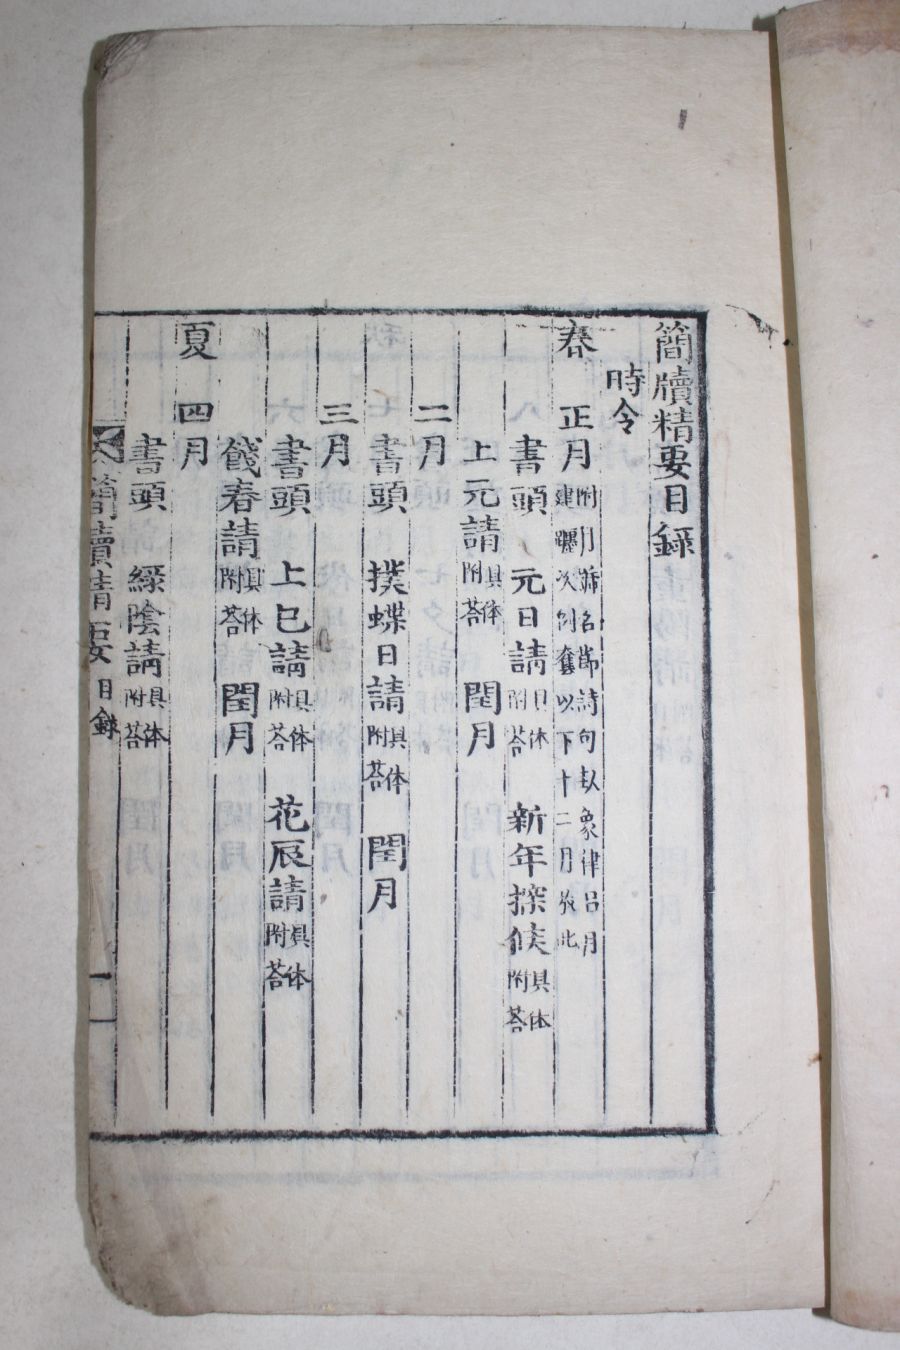 簡牘精要目錄
時令
春 正月 附月辦名節詩句卦象律呂月
建躔次例舊以下十二月倣此
書頭 元日請 具体附答 新年探候 具体附答
上元請 具体附答 閏月
二月
書頭 撲蝶日請 具体附答 閏月
三月
書頭 上巳請 具体附答 花辰請 具体附答
餞春請 具体附答 閏月
夏 四月
書頭 綠陰請 具体附答
簡牘精要 目錄 一